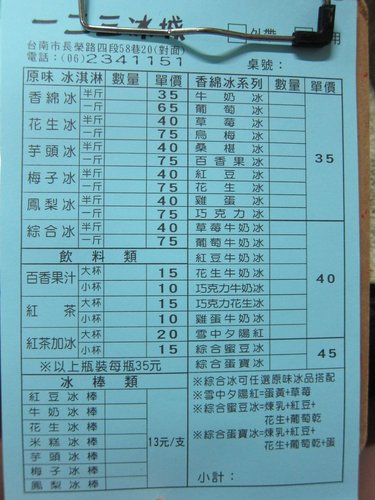 一二三冰城
外帶
用
台南市長榮路四段58巷20(對面)
電話：(06)2341151
桌號：
原味 冰淇淋 數量 單價
香綿冰 半斤 35
一斤 65
花生冰 半斤 40
一斤 75
芋頭冰 半斤 40
一斤 75
梅子冰 半斤 40
一斤 75
鳳梨冰 半斤 40
一斤 75
綜合冰 半斤 40
一斤 75
飲料類
百香果汁 大杯 15
小杯 10
紅茶 大杯 15
小杯 10
紅茶加冰 大杯 20
小杯 15
※以上瓶裝每瓶35元
冰棒類
紅豆冰棒
牛奶冰棒
花生冰棒
米糕冰棒 13元/支
芋頭冰棒
梅子冰棒
鳳梨冰棒
香綿冰系列 數量 單價
牛奶冰
葡萄冰
草莓冰
烏梅冰
桑椹冰
百香果冰 35
紅豆冰
花生冰
雞蛋冰
巧克力冰
草莓牛奶冰
葡萄牛奶冰
紅豆牛奶冰
花生牛奶冰 40
巧克力牛奶冰
巧克力花生冰
雞蛋牛奶冰
雪中夕陽紅
綜合蜜豆冰 45
綜合蛋寶冰
※綜合冰可任選原味冰品搭配
※雪中夕陽紅=蛋黃+草莓
※綜合蜜豆冰=煉乳+紅豆+
花生+葡萄乾
※綜合蛋寶冰=煉乳+紅豆+
花生+葡萄乾+蛋
小計：